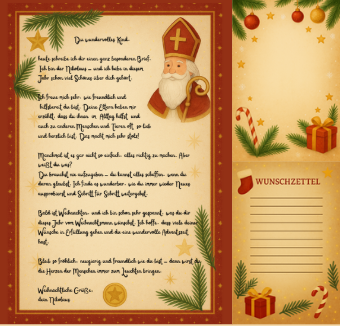 Du wundervolles Kind,
heute schreibe ich dir einen ganz besonderen Brief.
Ich bin der Nikolaus – und ich habe in diesem
Jahr schon viel Schönes über dich gehört.
Ich freue mich sehr, wie freundlich und
hilfsbereit du bist. Deine Eltern haben mir
erzählt, dass du ihnen im Alltag hilfst, und
auch zu anderen Menschen und Tieren oft so lieb
und herzlich bist. Das macht mich sehr stolz!
Manchmal ist es gar nicht so einfach, alles richtig zu machen. Aber
weißt du was?
Du brauchst nie aufzugeben – du kannst alles schaffen, wenn du
daran glaubst. Ich finde es wunderbar, wie du immer wieder Neues
ausprobierst und Schritt für Schritt weitergehst.
Bald ist Weihnachten, und ich bin schon sehr gespannt, was du dir
dieses Jahr vom Weihnachtsmann wünschst. Ich hoffe, dass viele deine
Wünsche in Erfüllung gehen und du eine wundervolle Adventszeit
hast.
Bleib so fröhlich, neugierig und freundlich wie du bist – denn wirst du
die Herzen der Menschen immer zum Leuchten bringen.
Weihnachtliche Grüße,
dein Nikolaus
WUNSCHZETTEL